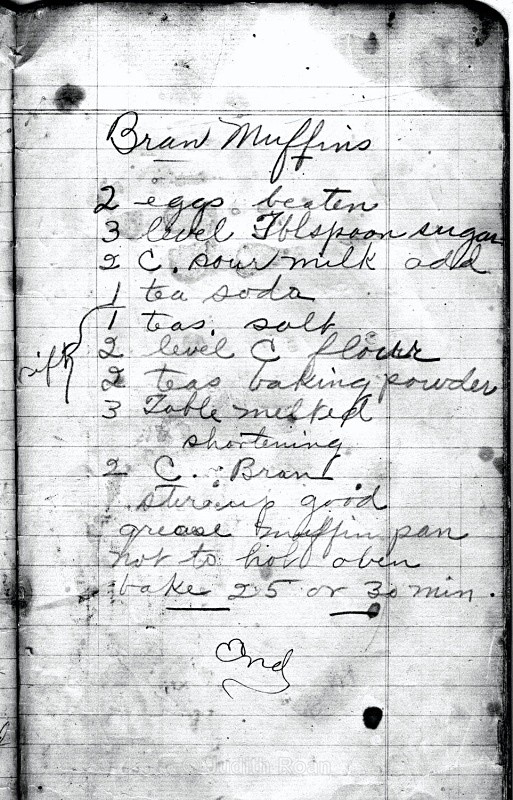 Bran Muffins
2 eggs beaten
3 level Tblspoon sugar
2 C. sour milk add
1 tea soda
1 teas. salt
sift
2 level C flour
2 teas baking powder
3 Table melted
shortening
2 C. Bran
stir up good
grease muffin pan
not to hot oben
bake 25 or 30 min.
End
Judith